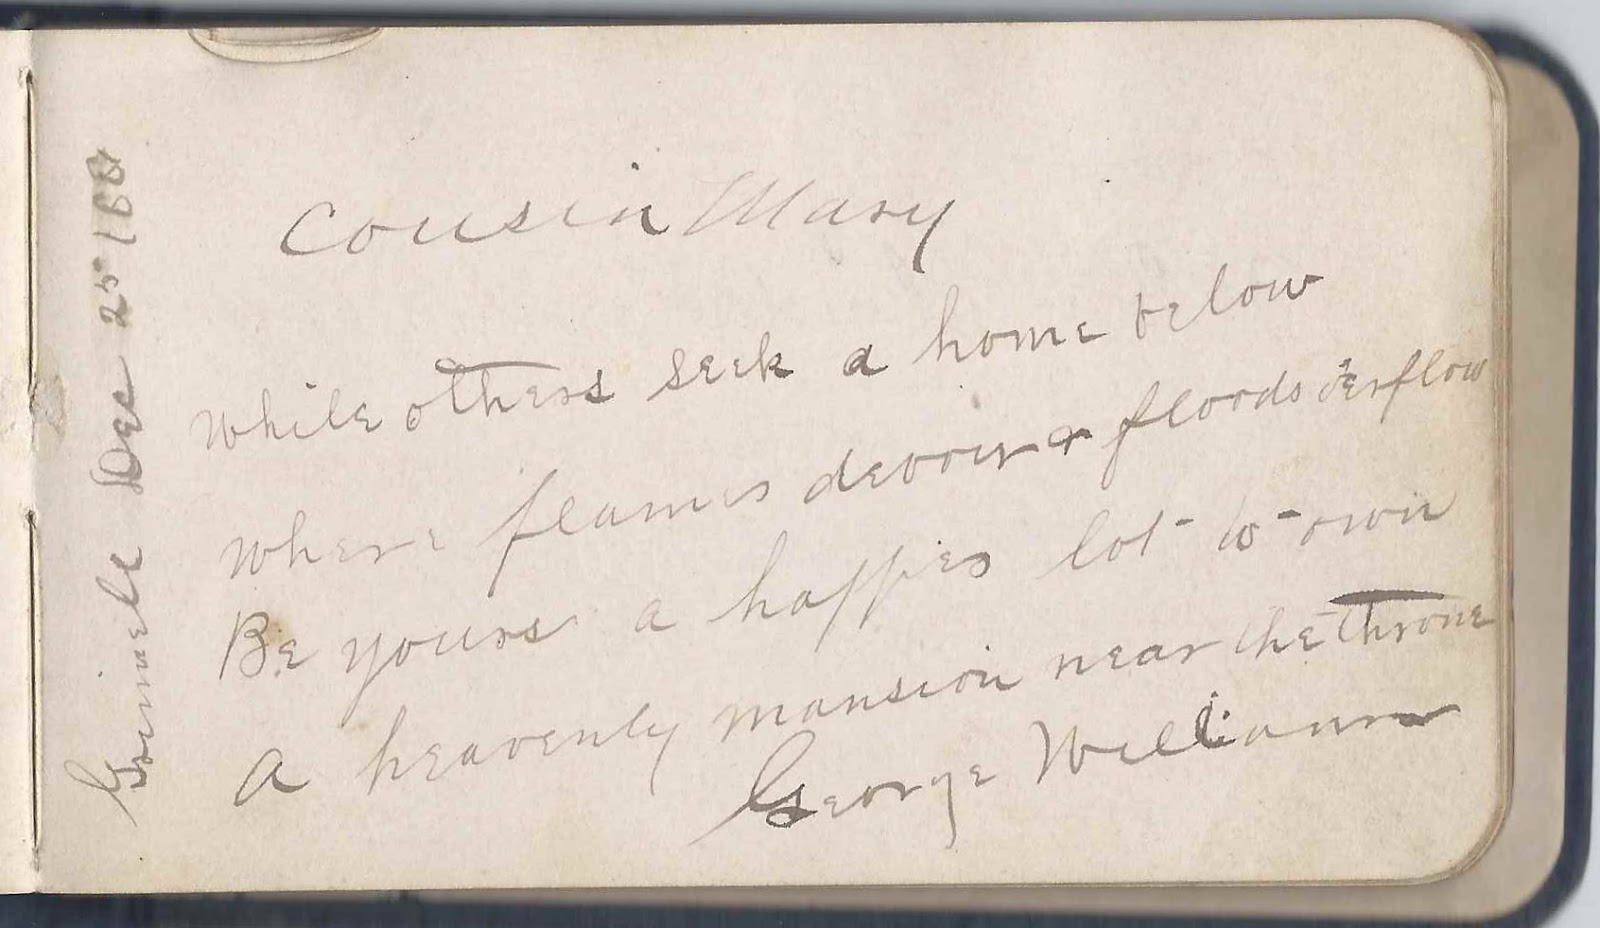 Cousin Mary
while others seek a home below
where flames devour & floods overflow
Be yours a happier lot to own
A heavenly mansion near the throne
George William
Dec 25